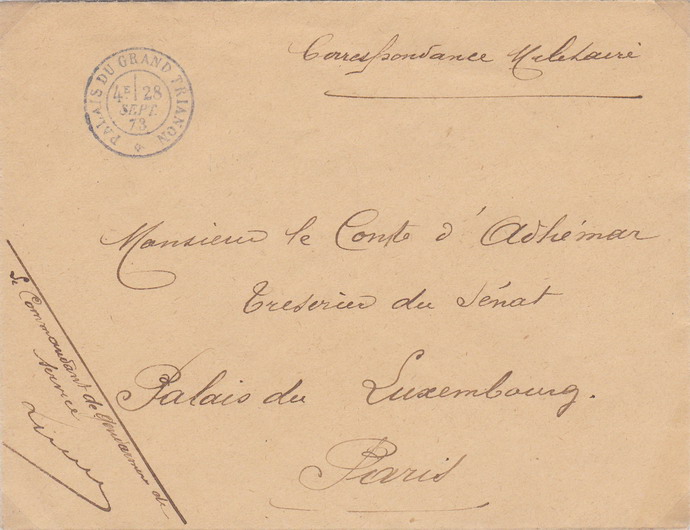 Correspondance Militaire
PALAIS DU GRAND TRIANON
4E 28
SEPT.
73
Monsieur le Comte d'Adhémar
Tresorier du Sénat
Palais du Luxembourg.
Paris
Le Commandant de Gendarmerie de
service